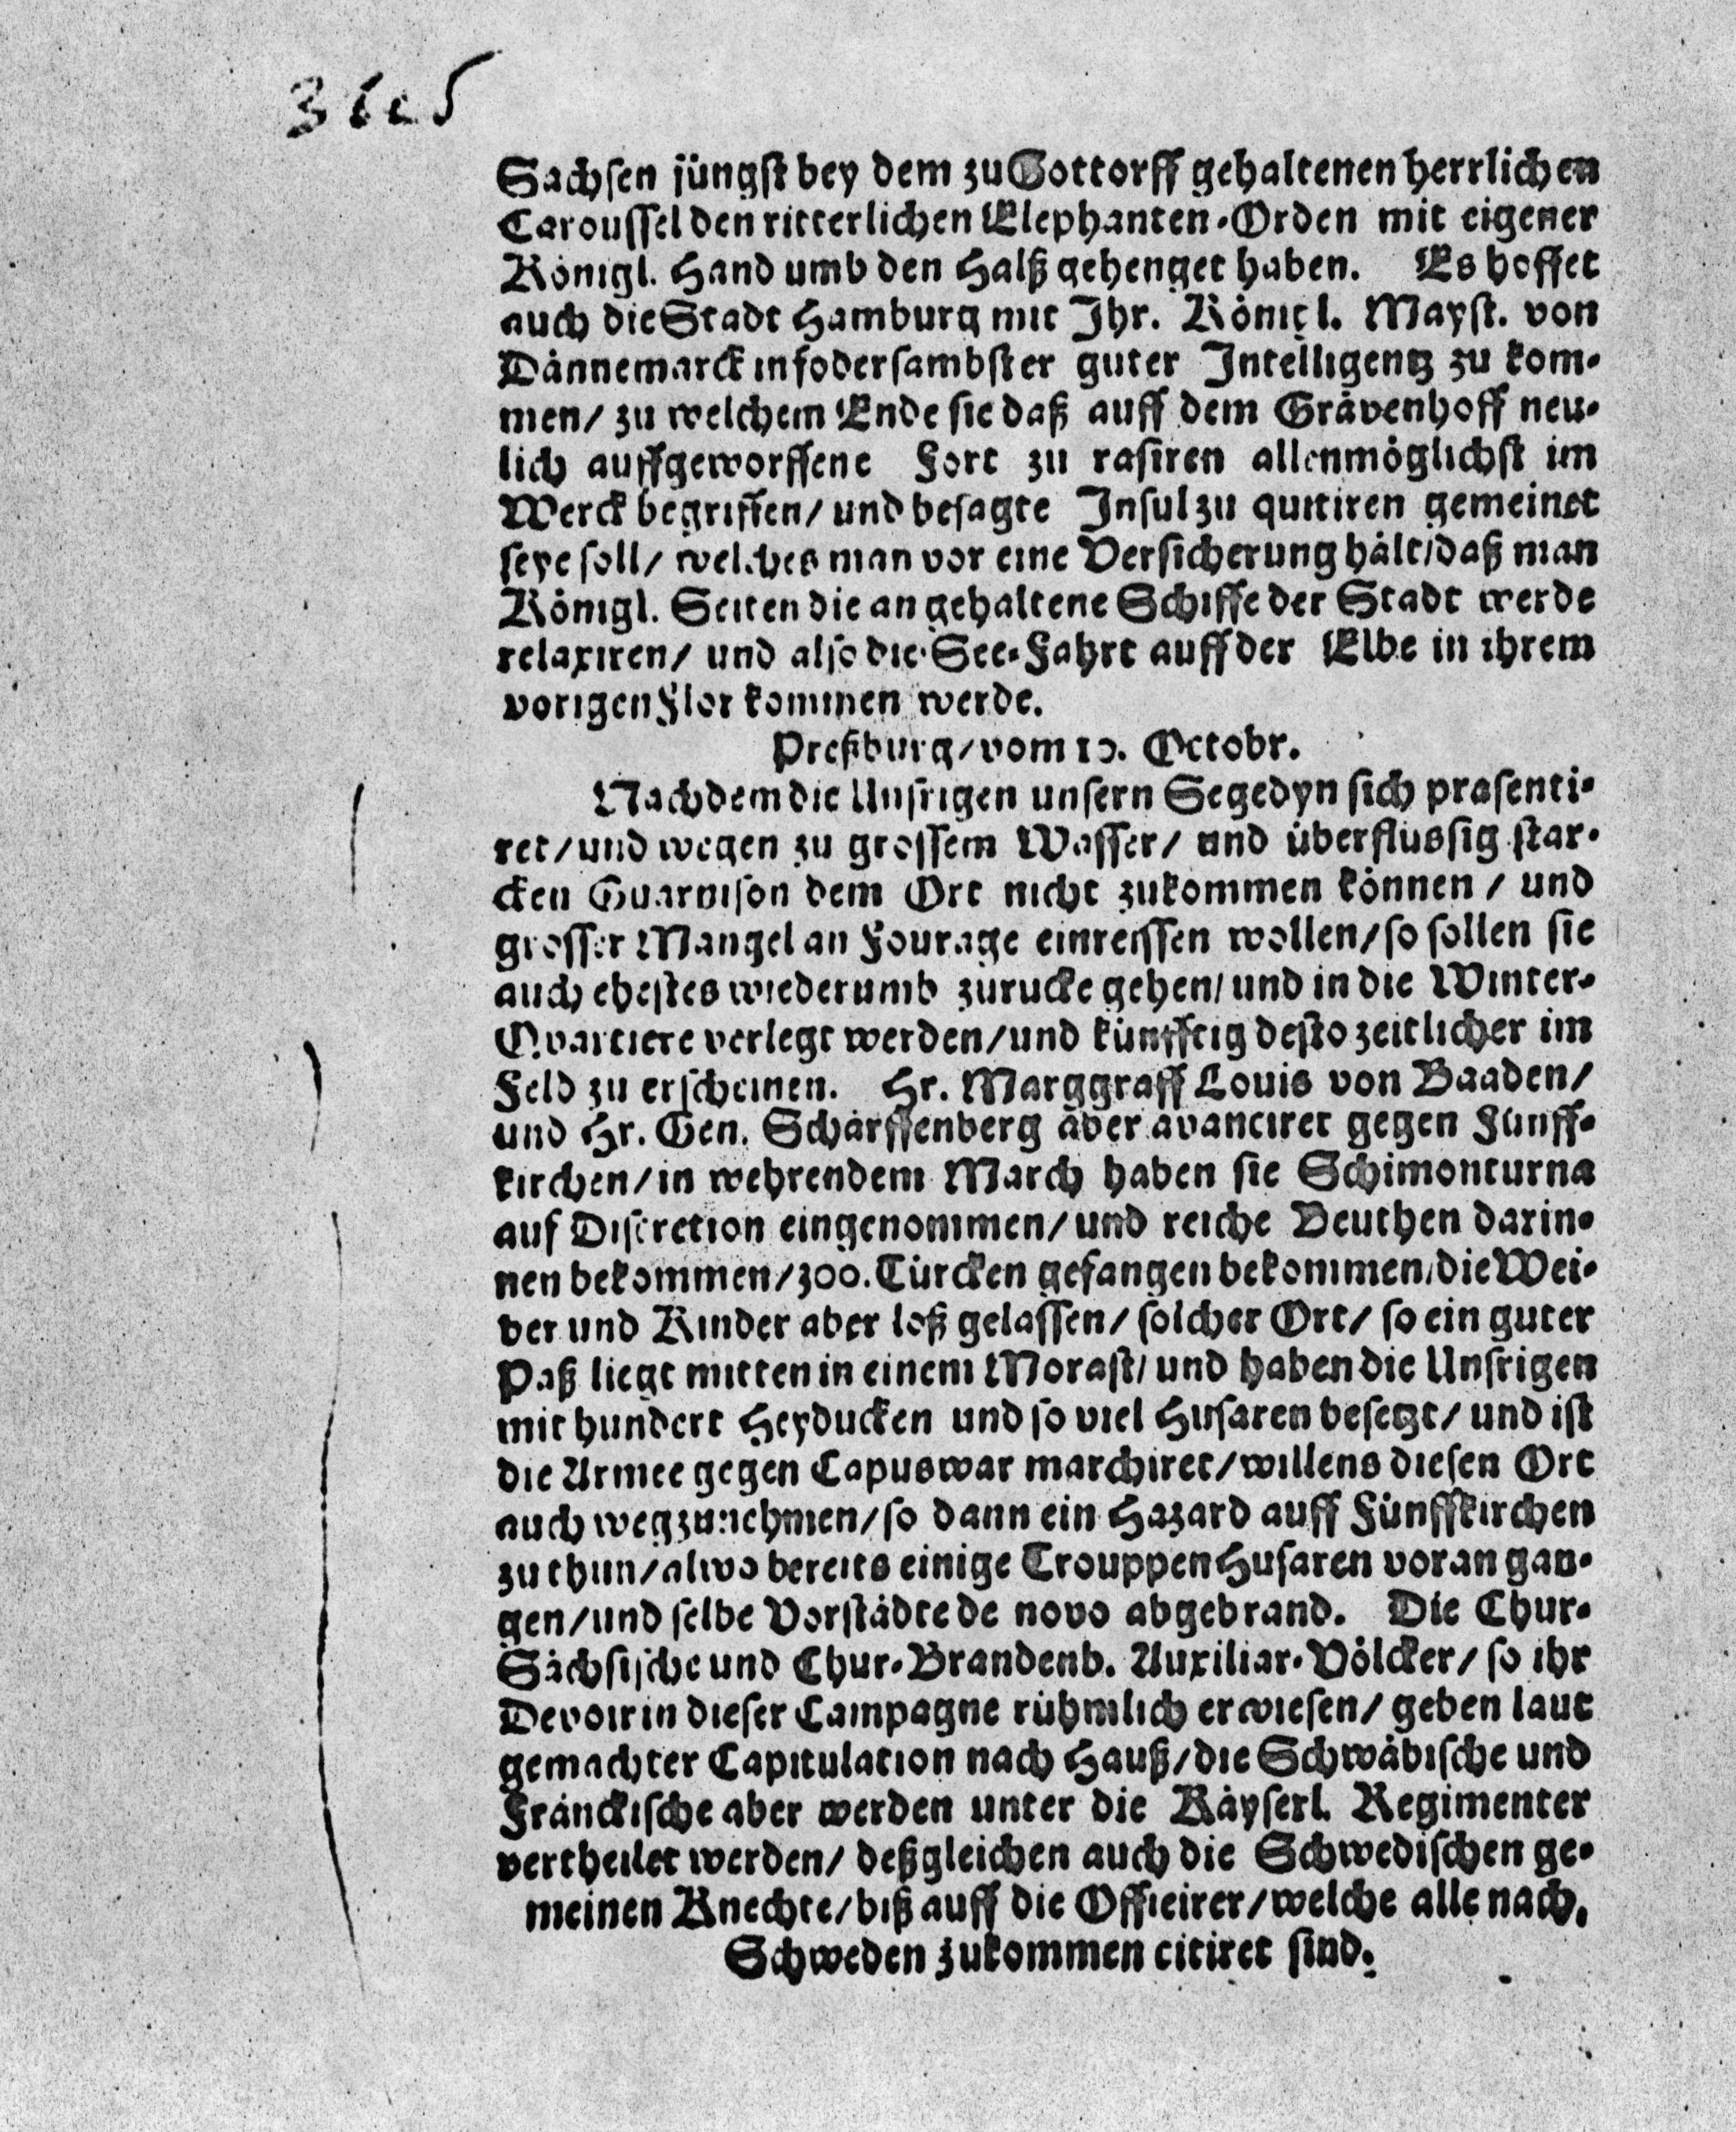 Sachsen jüngst bey dem zu Gottorff gehaltenen herrlichen
Caroussel den ritterlichen Elephanten-Orden mit eigener
Königl. Hand umb den Halß gehenget haben. Es hoffet
auch die Stadt Hamburg mit Ihr. Königl. Mayst. von
Dännemarck in fodersambster guter Intelligentz zu kom-
men/ zu welchem Ende sie daß auff dem Grävenhoff neu-
lich auffgeworffene Fort zu rasiren allenmöglichst im
Werck begriffen/ und besagte Insul zu quitiren gemeinet
seye soll/ welches man vor eine Versicherung hält/ daß man
Königl. Seiten die angehaltene Schiffe der Stadt werde
relaxiren/ und also die See-Fahrt auff der Elbe in ihrem
vorigen Flor kommen werde.
Preßburg/ vom 10. Octobr.
Nachdem die Unsrigen unsern Segedyn sich præsenti-
ret/ und wegen zu grossem Wasser/ und überflüssig star-
cken Guarnison dem Ort nicht zukommen können/ und
grosser Mangel an Fourage einreissen wollen/ so sollen sie
auch ehestes wiederumb zurucke gehen/ und in die Winter-
Quartiere verlegt werden/ und künfftig desto zeitlicher im
Feld zu erscheinen. Hr. Marggraff Louis von Baaden/
und Hr. Gen. Schärffenberg aber avanciret gegen Fünff-
kirchen/ in wehrendem March haben sie Schimonturna
auf Discretion eingenommen/ und reiche Beuthen darin-
nen bekommen/ 300. Türcken gefangen bekommen/ die Wei-
ber und Kinder aber loß gelassen/ solcher Ort/ so ein guter
Paß liegt mitten in einem Morast/ und haben die Unsrigen
mit hundert Heyducken und so viel Husaren besetzt/ und ist
die Armee gegen Capuswar marchiret/ willens diesen Ort
auch wegzunehmen/ so dann ein Hazard auff Fünffkirchen
zu thun/ alwo bereits einige Trouppen Husaren voran gan-
gen/ und selbe Vorstädte de novo abgebrand. Die Chur-
Sächsische und Chur-Brandenb. Auxiliar-Völcker/ so ihr
Devoir in dieser Campagne rühmlich erwiesen/ geben laut
gemachter Capitulation nach Hauß/ die Schwäbische und
Fränckische aber werden unter die Käyserl. Regimenter
vertheilet werden/ deßgleichen auch die Schwedischen ge-
meinen Knechte/ biß auff die Officirer/ welche alle nach
Schweden zukommen citiret sind.